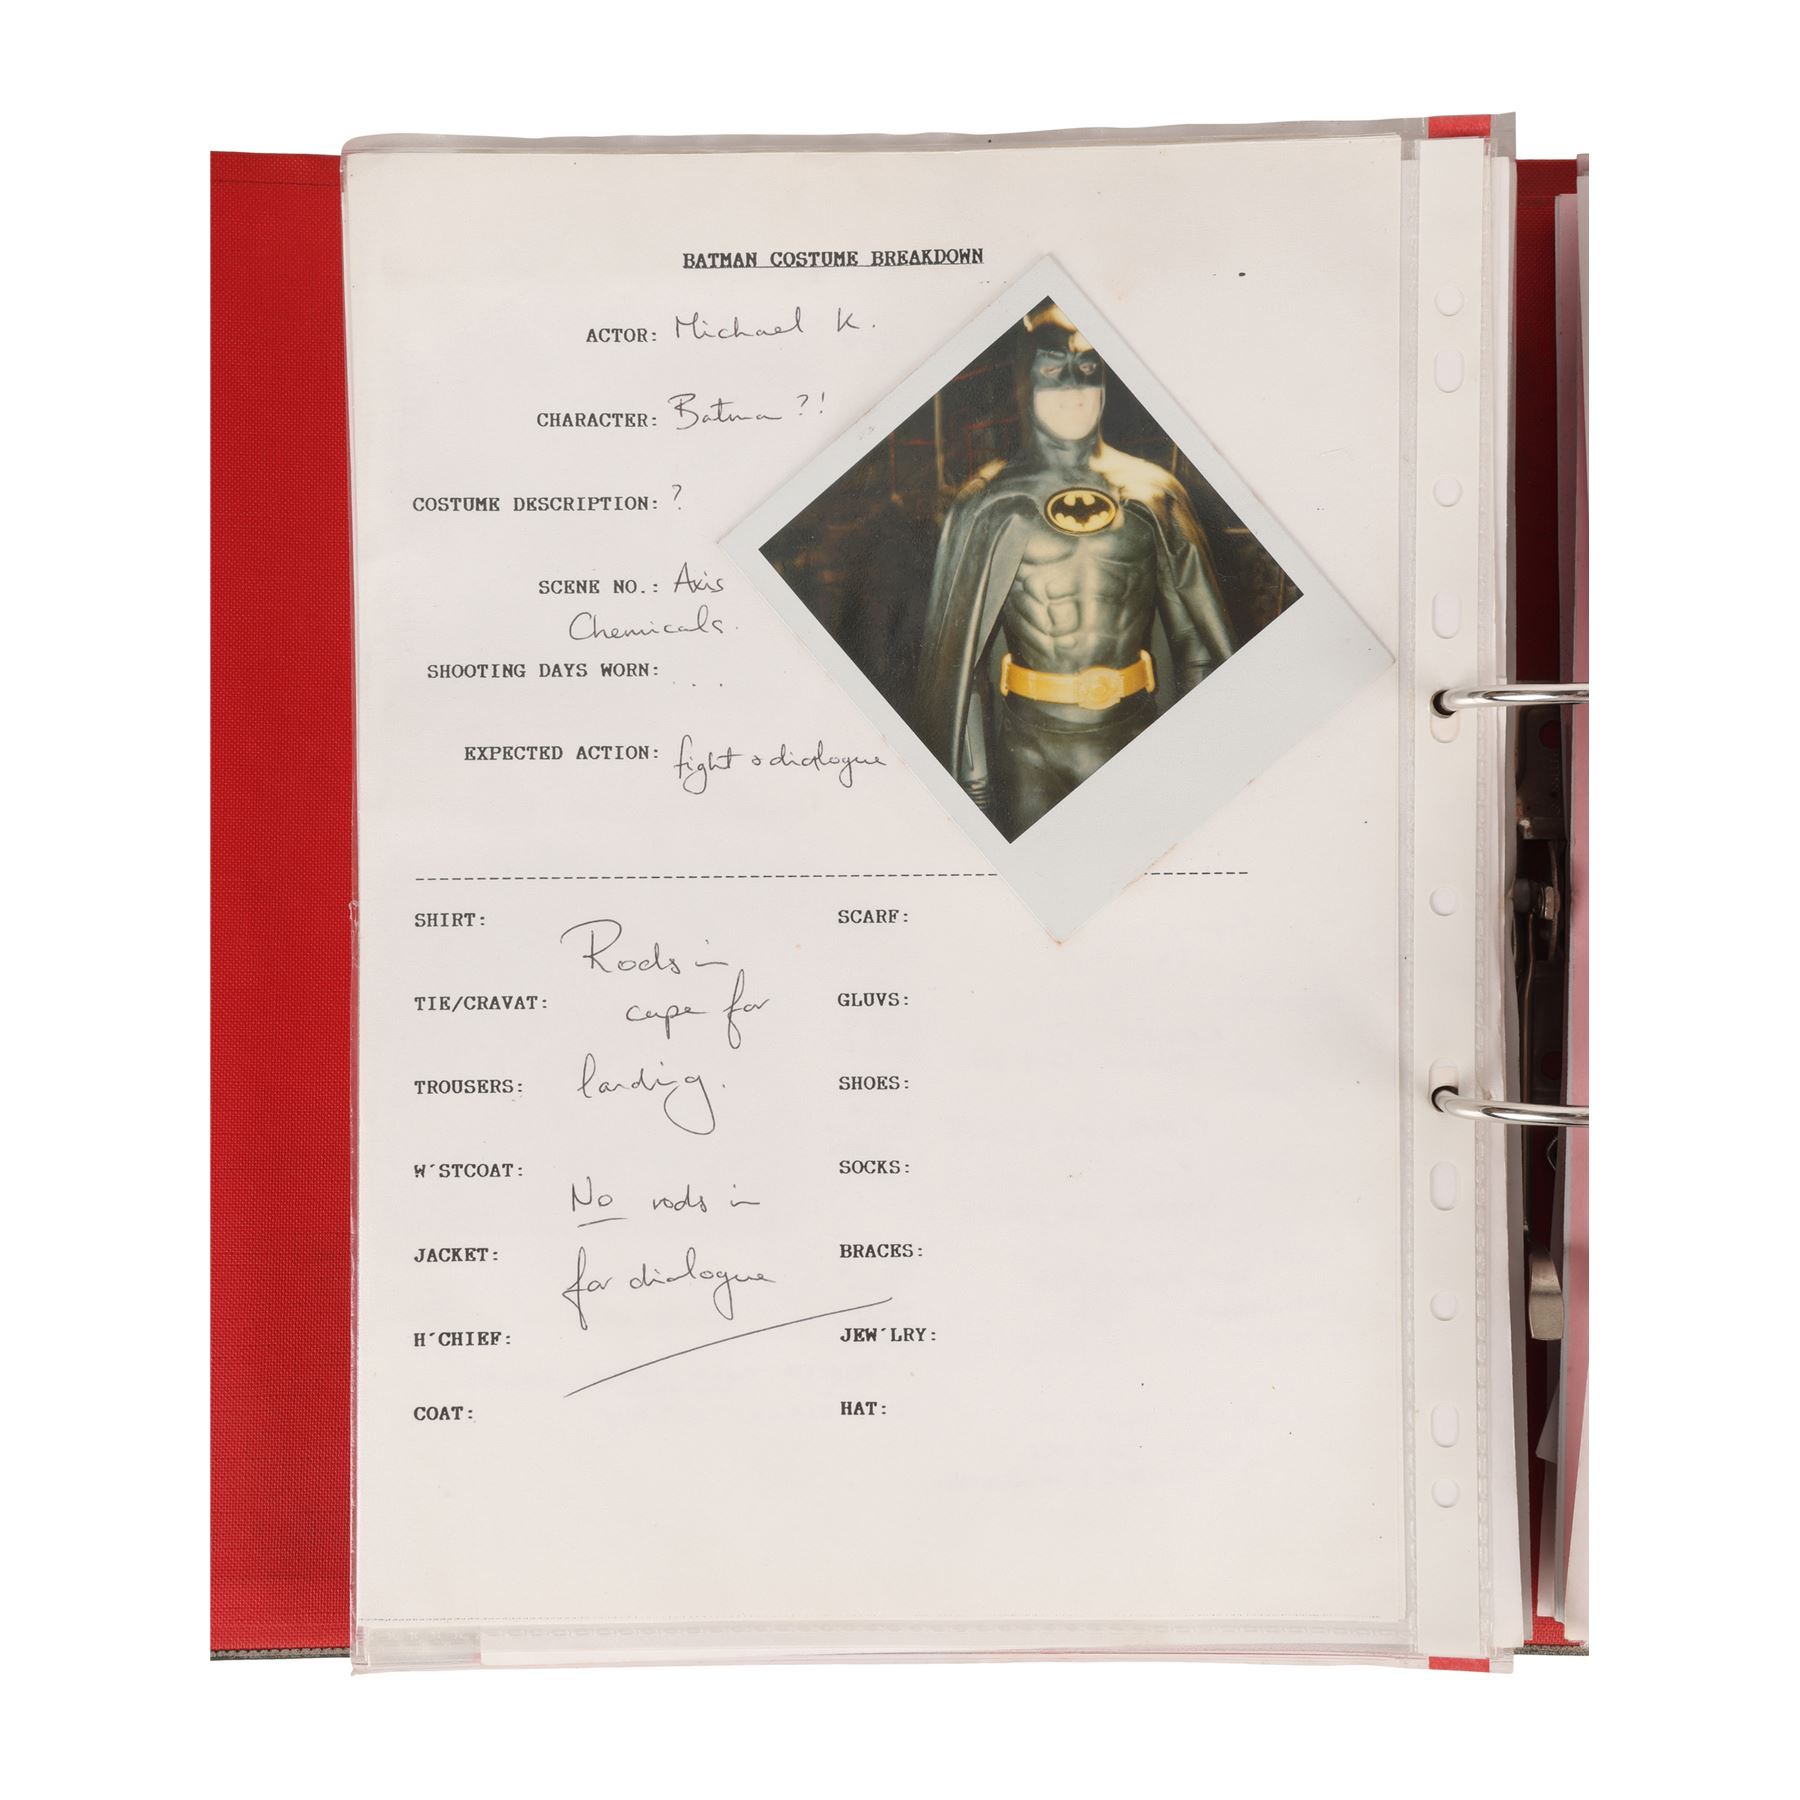 BATMAN COSTUME BREAKDOWN
ACTOR: Michael K.
CHARACTER: Batman ?!
COSTUME DESCRIPTION: ?
SCENE NO.: Axis
Chemicals.
SHOOTING DAYS WORN: . . .
EXPECTED ACTION: fight & dialogue
SHIRT:
Rods in
TIE/CRAVAT:
cape for
TROUSERS:
landing.
W'STCOAT:
No rods in
JACKET:
for dialogue
H'CHIEF:
COAT:
SCARF:
GLUVS:
SHOES:
SOCKS:
BRACES:
JEW'LRY:
HAT: